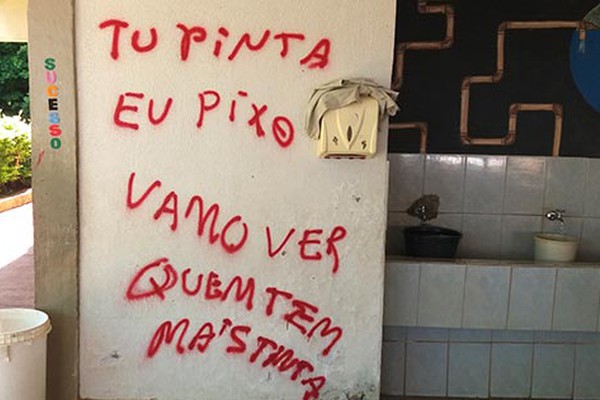 SUCESSO
TU PINTA
EU PIXO
VAMO VER
QUEM TEM
MAIS TINTA